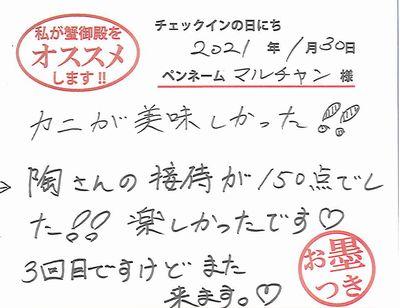 私が蟹御殿を
オススメ
します!!
チェックインの日にち
2021年1月30日
ペンネーム マルチャン 様
カニが美味しかった!!
→ 陶さんの接待が150点でし
た!! 楽しかったです♡
3回目ですけど また
来ます。♡
お墨
つき